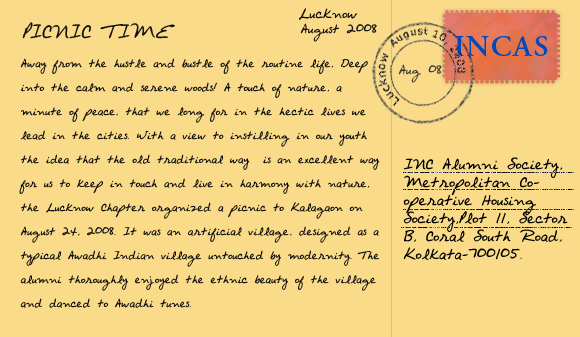 PICNIC TIME
Lucknow
August 2008
Away from the hustle and bustle of the routine life, Deep
into the calm and serene woods! A touch of nature, a
minute of peace, that we long for in the hectic lives we
lead in the cities. With a view to instilling in our youth
the idea that the old traditional way is an excellent way
for us to keep in touch and live in harmony with nature,
the Lucknow Chapter organized a picnic to Kalagaon on
August 24, 2008. It was an artificial village, designed as a
typical Awadhi Indian village untouched by modernity. The
alumni thoroughly enjoyed the ethnic beauty of the village
and danced to Awadhi tunes.
Lucknow August 10,
Aug 08
INCAS
INC Alumni Society,
Metropolitan Co-
operative Housing
Society,Plot 11, Sector
B, Coral South Road,
Kolkata-700105.